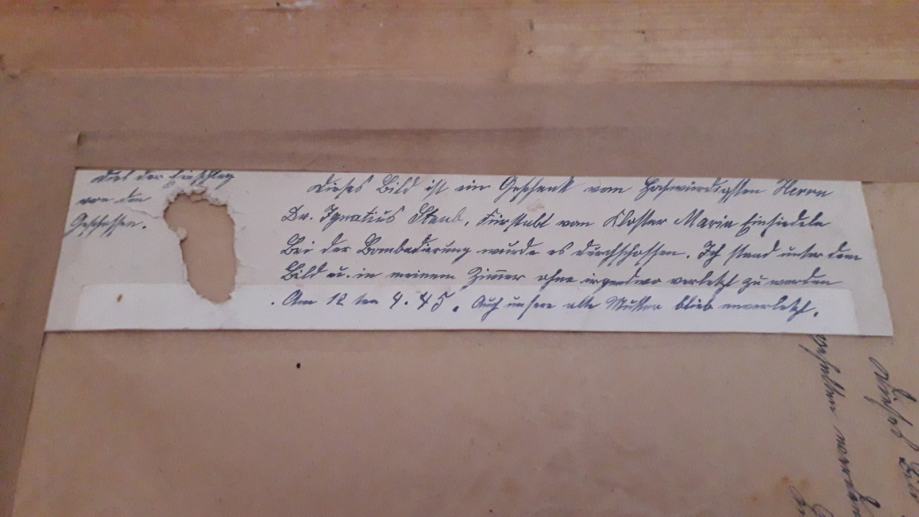 Dies der Einschlag
von den
Geschossen.
Dieses Bild ist ein Geschenk vom Hochwürdigsten Herrn
Dr. Ignatius Staub, Fürstabt von Kloster Maria Einsiedeln
Bei der Bombadierung wurde es durchschossen. Ich stand unter dem
Bild u. in meinem Zimmer ohne irgendwo verletzt zu werden
. Am 12 ten 4. 45. Auch unsere alte Mutter blieb unverletzt.
Dieses Bild
werden